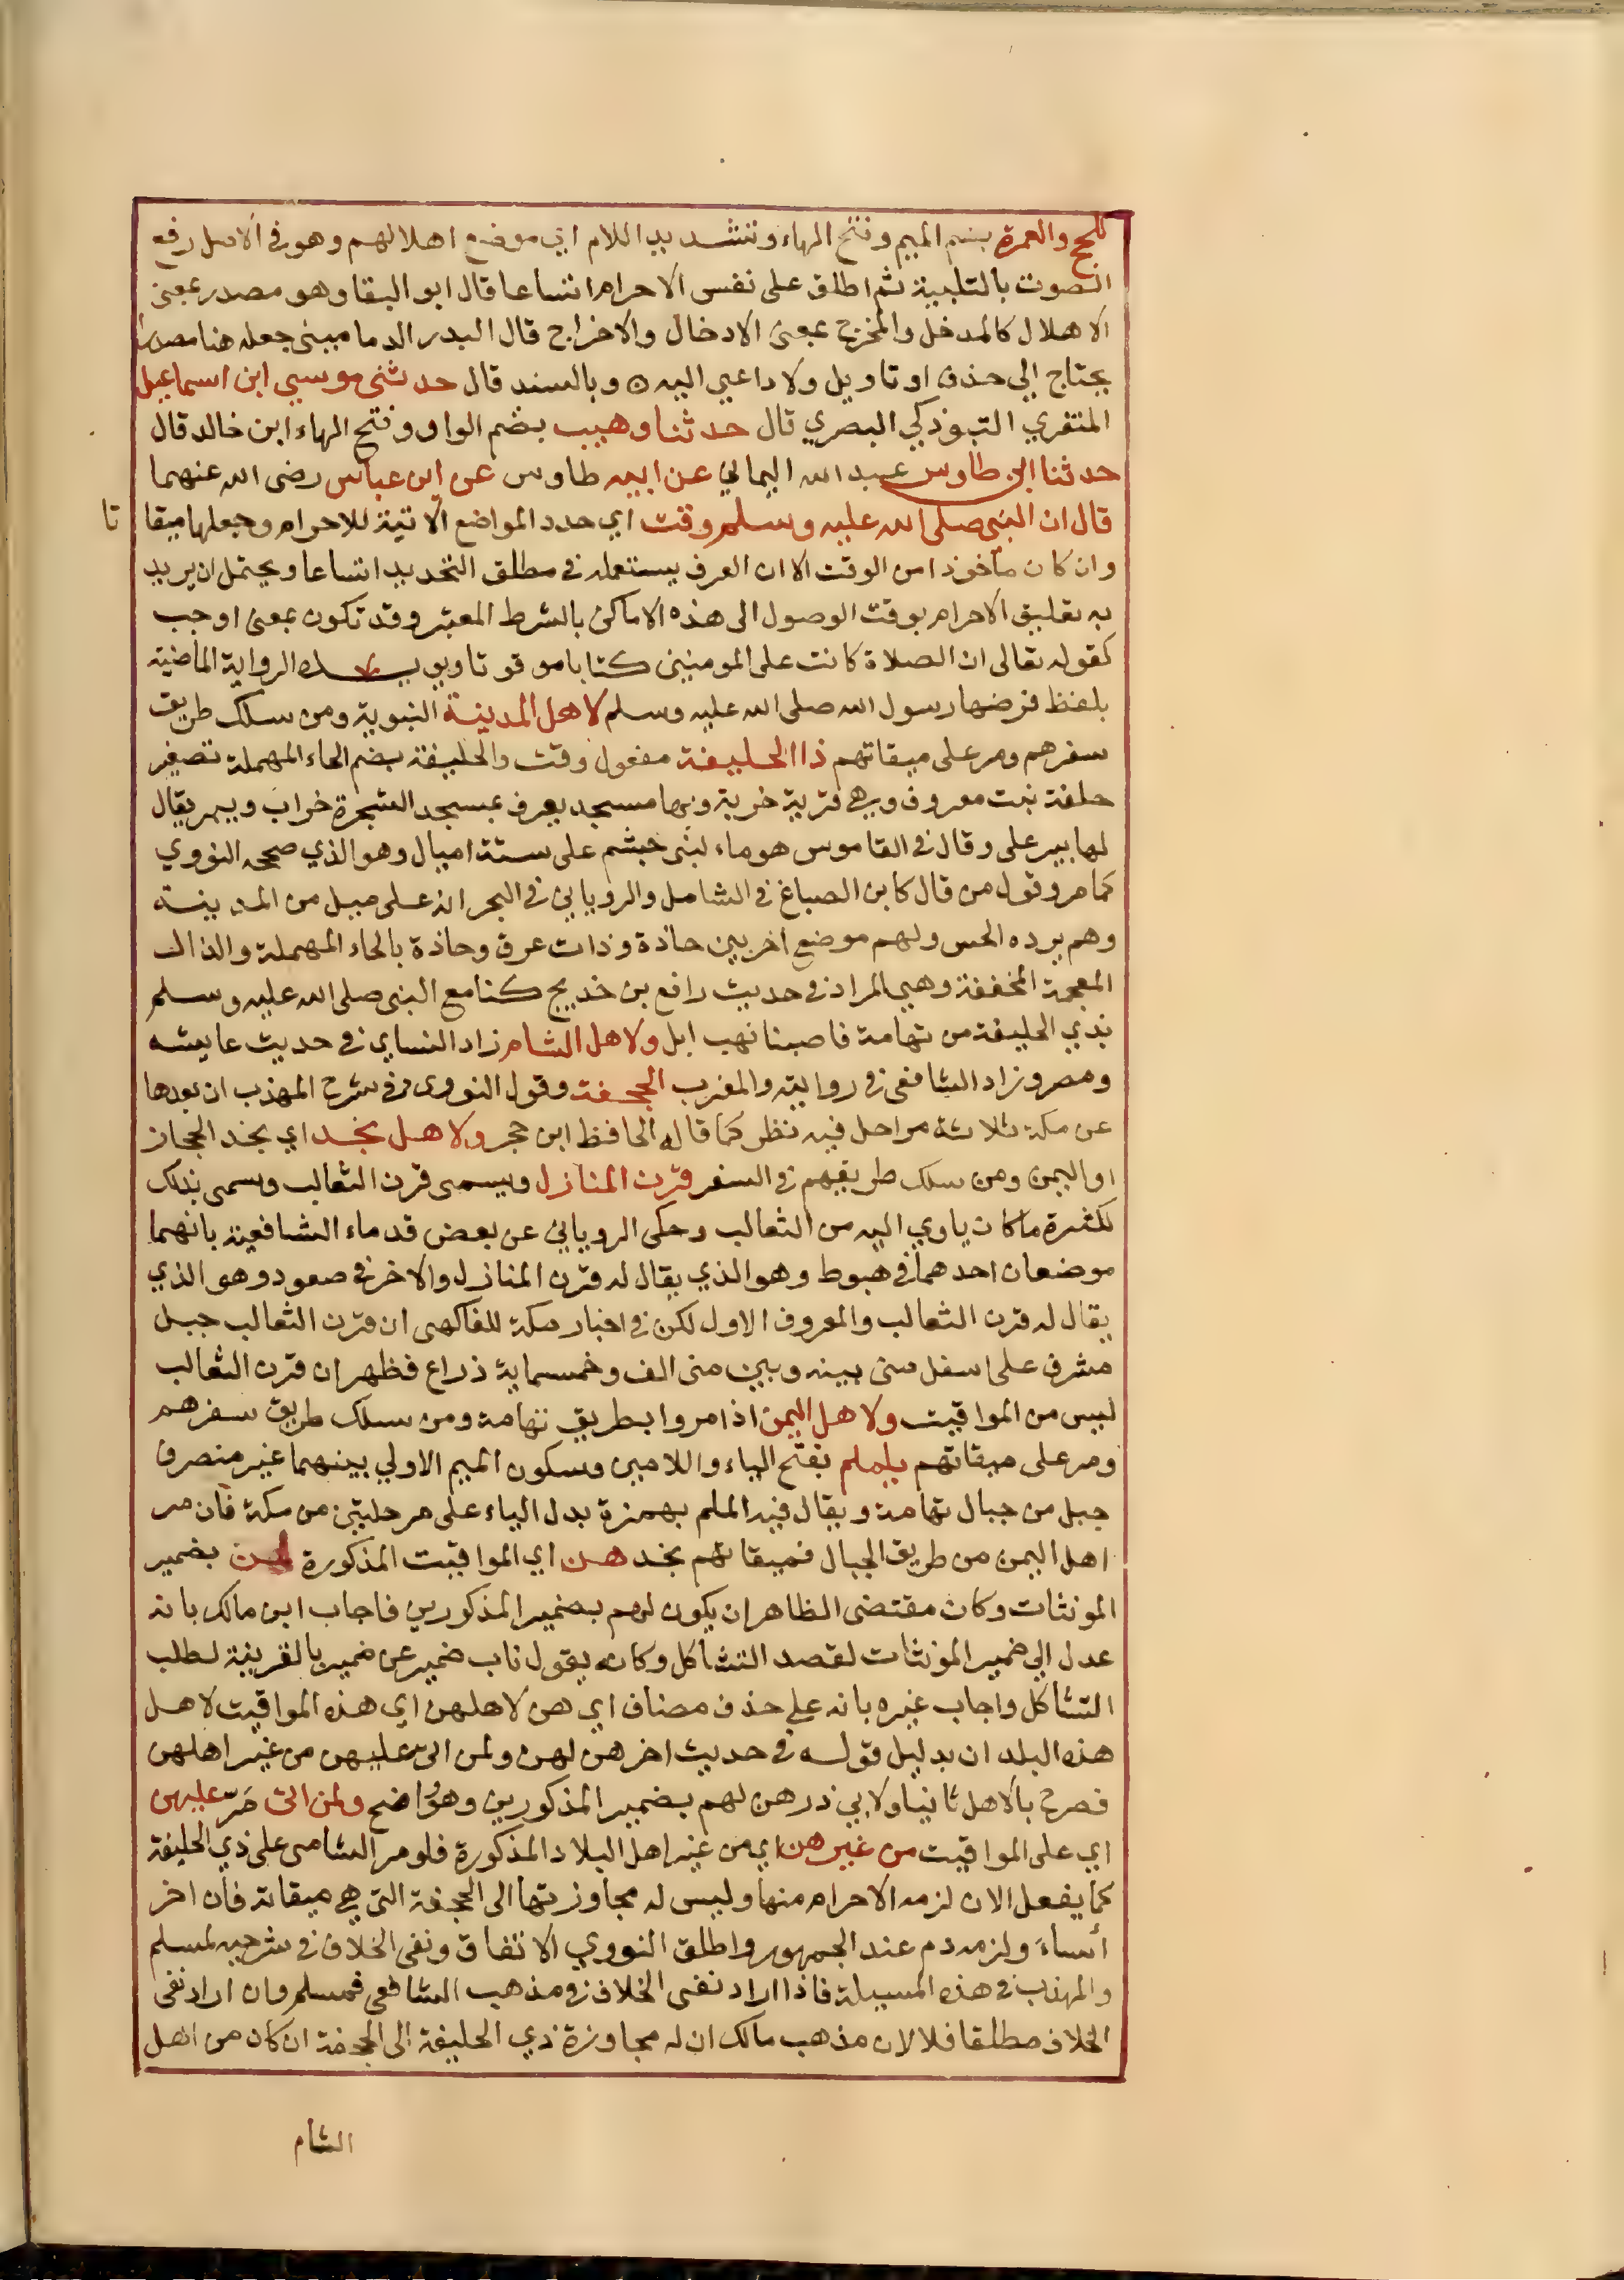 للحج والعمرة بضم الميم وفتح الهاء وتشديد اللام اي موضع اهلالهم وهو في الاصل رفع
الصوت بالتلبية ثم اطلق على نفس الاحرام اتساعا قال ابو البقا وهو مصدر بمعنى
الاهلال كالمدخل والمخرج بمعنى الادخال والاخراج قال البدر الدماميني جعله هنا مصدرا
يحتاج الي حذف او تاويل ولا داعي اليه ه وبالسند قال حدثني موسي ابن اسماعيل
المنقري التبوذكي البصري قال حدثنا وهيب بضم الواو وفتح الهاء ابن خالد قال
حدثنا ابن طاوس عبد الله اليماني عن ابيه طاوس عن ابن عباس رضى الله عنهما
قال ان النبى صلى الله عليه وسلم وقت اي حدد المواضع الاتية للاحرام وجعلها ميقا تا
وان كان مأخوذا من الوقت الا ان العرف يستعمله في مطلق التحديد اتساعا ويحتمل ان يريد
به تعليق الاحرام بوقت الوصول الى هذه الاماكن بالشرط المعتبر وقد تكون بمعنى اوجب
كقوله تعالى ان الصلاة كانت على المومنين كتابا موقوتا ويويده الرواية الماضية
بلفظ فرضها رسول الله صلى الله عليه وسلم لاهل المدينة النبوية ومن سلك طريق
سفرهم ومر على ميقاتهم ذا الحليفة مفعول وقت والحليفة بضم الحاء المهملة تصغير
حلفة نبت معروف وهي قرية خربة وبها مسجد يعرف بمسجد الشجرة خراب وبير يقال
لها بير على وقال في القاموس هو ماء لبنى جشم على ستة اميال وهو الذي صححه النووي
كما مر وقول من قال كابن الصباغ في الشامل والروياني في البحر انه على ميل من المدينة
وهم يرده الحس ولهم موضع اخر بين حاذة وذات عرق وحاذة بالحاء المهملة والذال
المعجمة المخففة وهي المراد في حديث رافع بن خديج كنا مع النبى صلى الله عليه وسلم
بذي الحليفة من تهامة فاصبنا نهب ابل ولاهل الشام زاد النساي في حديث عايشه
ومصر وزاد الشافعى في روايته والمغرب الجحفة وقول النووى في شرح المهذب ان بعدها
عن مكة ثلاثة مراحل فيه نظر كما قاله الحافظ ابن حجر ولاهل نجد اي نجد الحجاز
او اليمن ومن سلك طريقهم في السفر قرن المنازل ويسمى قرن الثعالب وسمى بذلك
لكثرة ما كان ياوي اليه من الثعالب وحكى الروياني عن بعض قدماء الشافعية بانهما
موضعان احدهما في هبوط وهو الذي يقال له قرن المنازل والاخر في صعود وهو الذي
يقال له قرن الثعالب والمعروف الاول لكن في اخبار مكة للفاكهى ان قرن الثعالب جبل
مشرف على اسفل منى بينه وبين منى الف وخمسماية ذراع فظهر ان قرن الثعالب
ليس من المواقيت ولاهل اليمن اذا مروا بطريق تهامة ومن سلك طريق سفرهم
ومر على ميقاتهم يلملم بفتح الياء واللامين وسكون الميم الاولي بينهما غير منصرف
جبل من جبال تهامة ويقال فيه الملم بهمزة بدل الياء على مرحلتين من مكة فان مر
اهل اليمن من طريق الجبال فميقاتهم نجد هن اي المواقيت المذكورة لهن بضمير
المونثات وكان مقتضى الظاهر ان يكون لهم بضمير المذكورين فاجاب ابن مالك بانه
عدل الي ضمير المونثات لقصد التشاكل وكانه يقول ناب ضمير عن ضمير بالقرينة لطلب
التشاكل واجاب غيره بانه علي حذف مضاف اي هن لاهلهن اي هذه المواقيت لاهل
هذه البلدان بدليل قوله في حديث اخر هن لهن ولمن اتى عليهن من غير اهلهن
فصرح بالاهل ثانيا ولابي ذر هن لهم بضمير المذكورين وهو واضح ولمن اتى مَرّ عليهن
اي على المواقيت من غيرهن اي من غير اهل البلاد المذكورة فلو مر الشامى على ذي الحليفة
كما يفعل الان لزمه الاحرام منها وليس له مجاوزتها الى الجحفة التي هي ميقاته فان اخر
أساءَ ولزمه دم عند الجمهور واطلق النووي الاتفاق ونفى الخلاف في شرحيه لمسلم
والمهذب في هذه المسيلة فاذا اراد نفى الخلاف في مذهب الشافعى فمسلم وان اراد نفى
الخلاف مطلقا فلا لان مذهب مالك ان له مجاوزة ذي الحليفة الى الجحفة ان كان من اهل
الشام